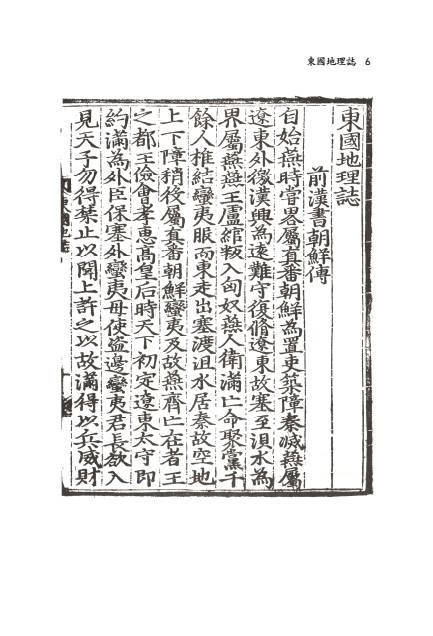 東國地理誌 6
東國地理誌
前漢書朝鮮傳
自始燕時嘗畧屬真番朝鮮為置吏築障秦滅燕屬
遼東外徼漢興為遠難守復脩遼東故塞至浿水為
界屬燕燕王盧綰叛入匈奴燕人衛滿亡命聚黨千
餘人椎結蠻夷服而東走出塞渡浿水居秦故空地
上下障稍役屬真番朝鮮蠻夷及故燕齊亡在者王
之都王儉會孝惠高皇后時天下初定遼東太守即
約滿為外臣保塞外蠻夷毋使盜邊蠻夷君長欲入
見天子勿得禁止以聞上許之以故滿得以兵威財
東國地誌